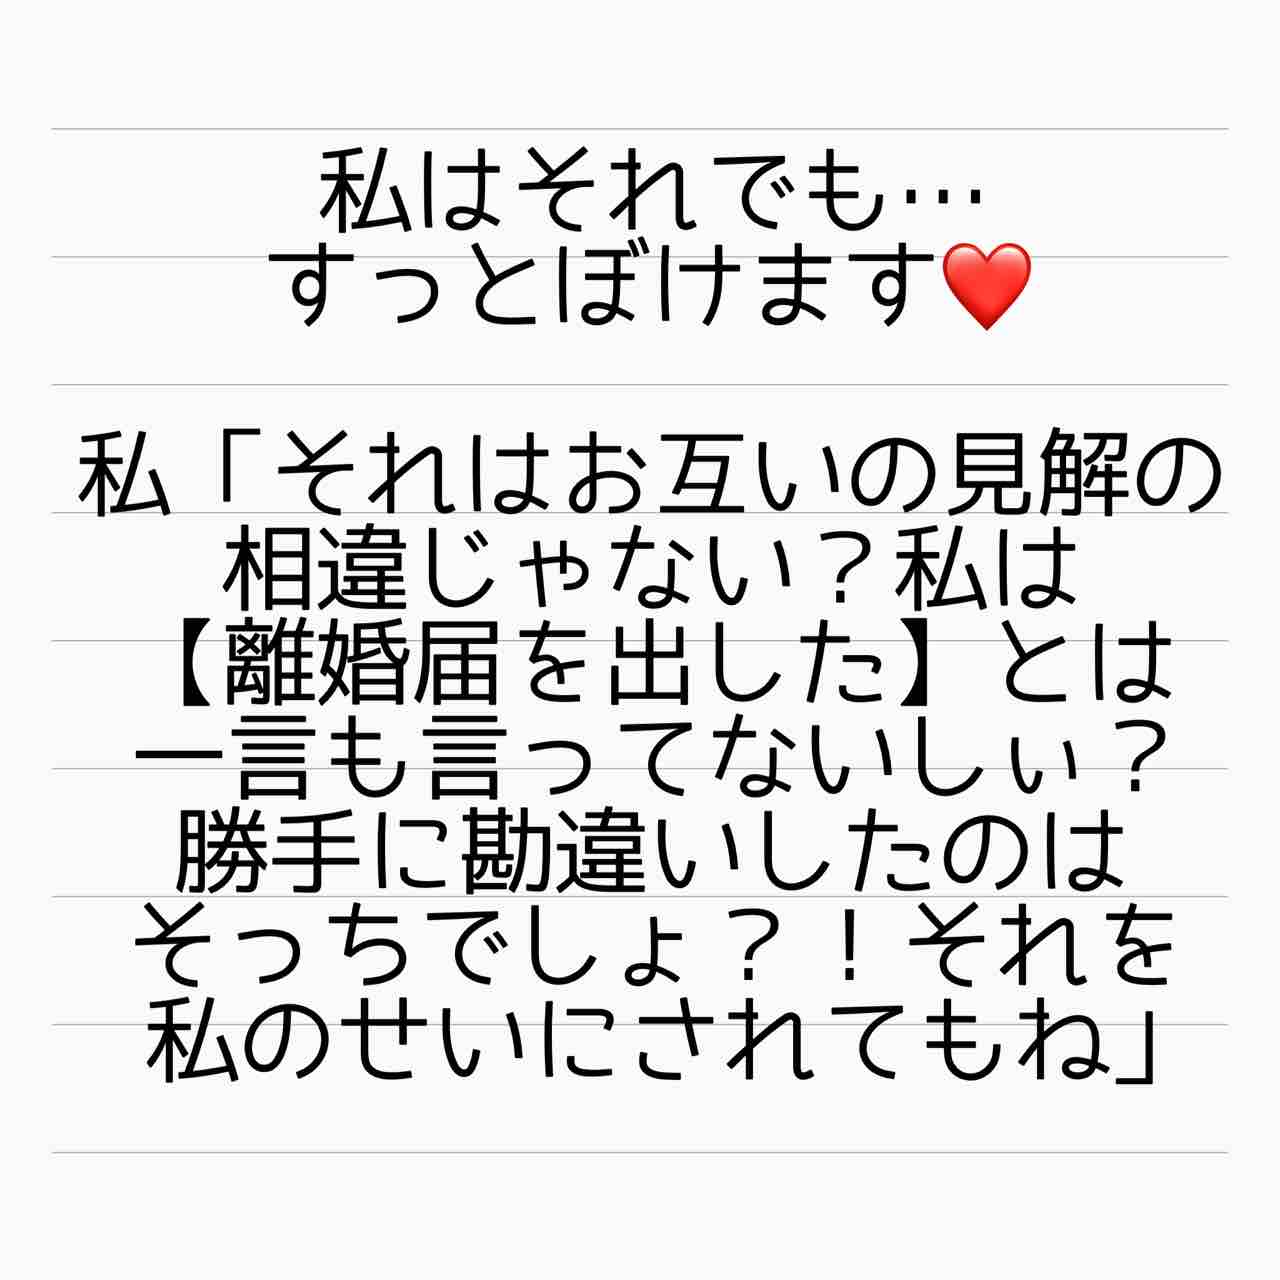 私はそれでも…
すっとぼけます❤️
私「それはお互いの見解の
相違じゃない？私は
【離婚届を出した】とは
一言も言ってないしぃ？
勝手に勘違いしたのは
そっちでしょ？！それを
私のせいにされてもね」